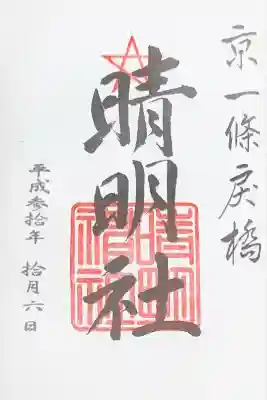 京一條戻橋
晴明社
晴明神社
平成参拾年 拾月六日